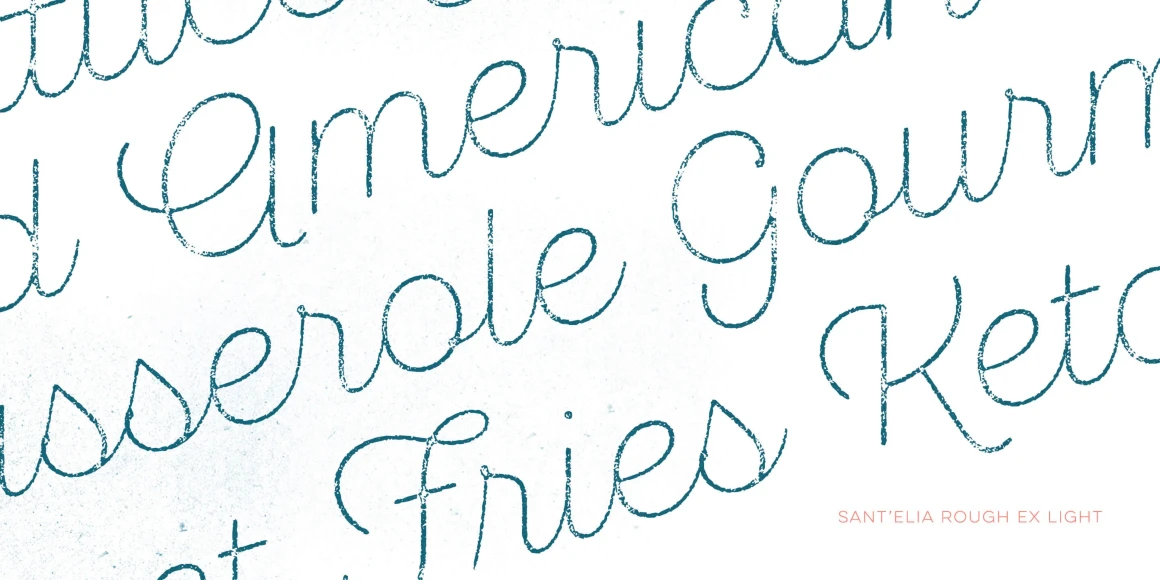 American
asserole Gourm
Fries Keto
SANT'ELIA ROUGH EX LIGHT